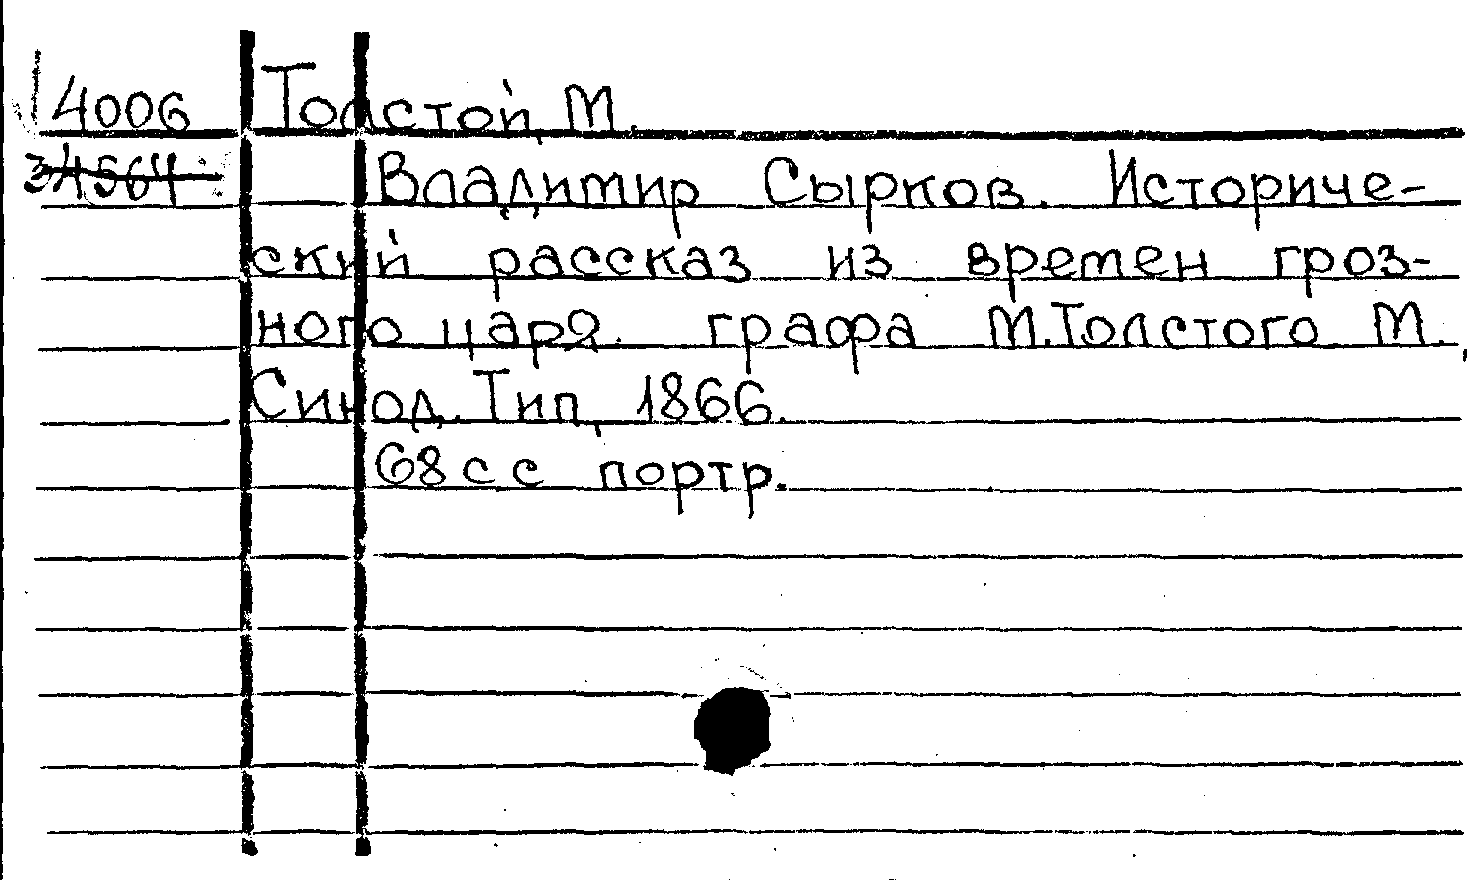 4006 Толстой, М.
34564 Владимир Сырков. Историче-
ский рассказ из времен гроз-
ного царя. графа М.Толстого М.,
Синод. Тип, 1866.
68 с с портр.